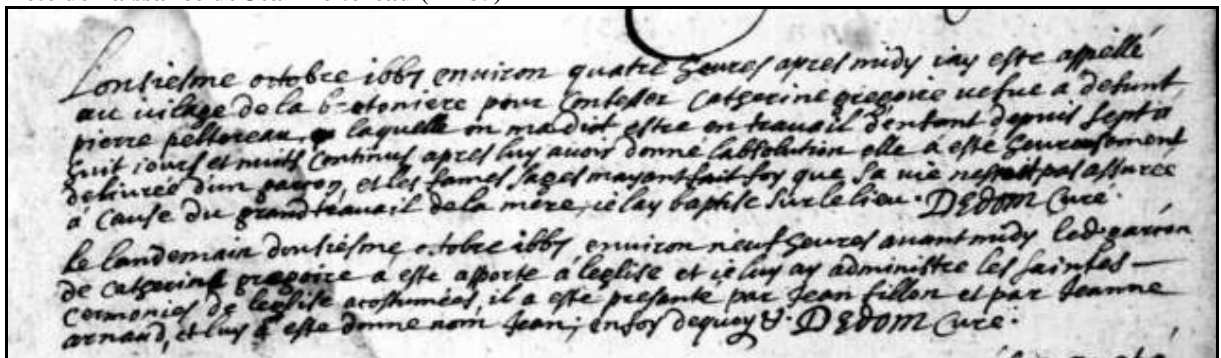 Lonsiesme octobre 1667 environ quatre heures apres midy iay este appellé
au vilage de la b-etoniere pour Confesser Catherine gregoire vefue a defunt
pierre peltereau, laquelle on ma dict estre en travail denfant depuis sept a
huit iours et nuits Continus apres luy avoir donné labsolution elle á esté heureusement
delivrée dun garson, et les fames sages mayant fait foy que sa vie nestoit pas assurée
á Cause du grand travail de la mère, ie lay baptise sur le lieu. DEDOM Curé.
Le landemain dousiesme octobre 1667 environ neuf heures avant midy led. garson
de Catherine gregoire a este aporte á leglise et ie luy ay administre les saintes
ceremonies de leglise acostumées, il a este presenté par Jean fillon et par Jeanne
arnaud, et luy á este donne nom Jean; en foy dequoy &. DEDOM Curé.